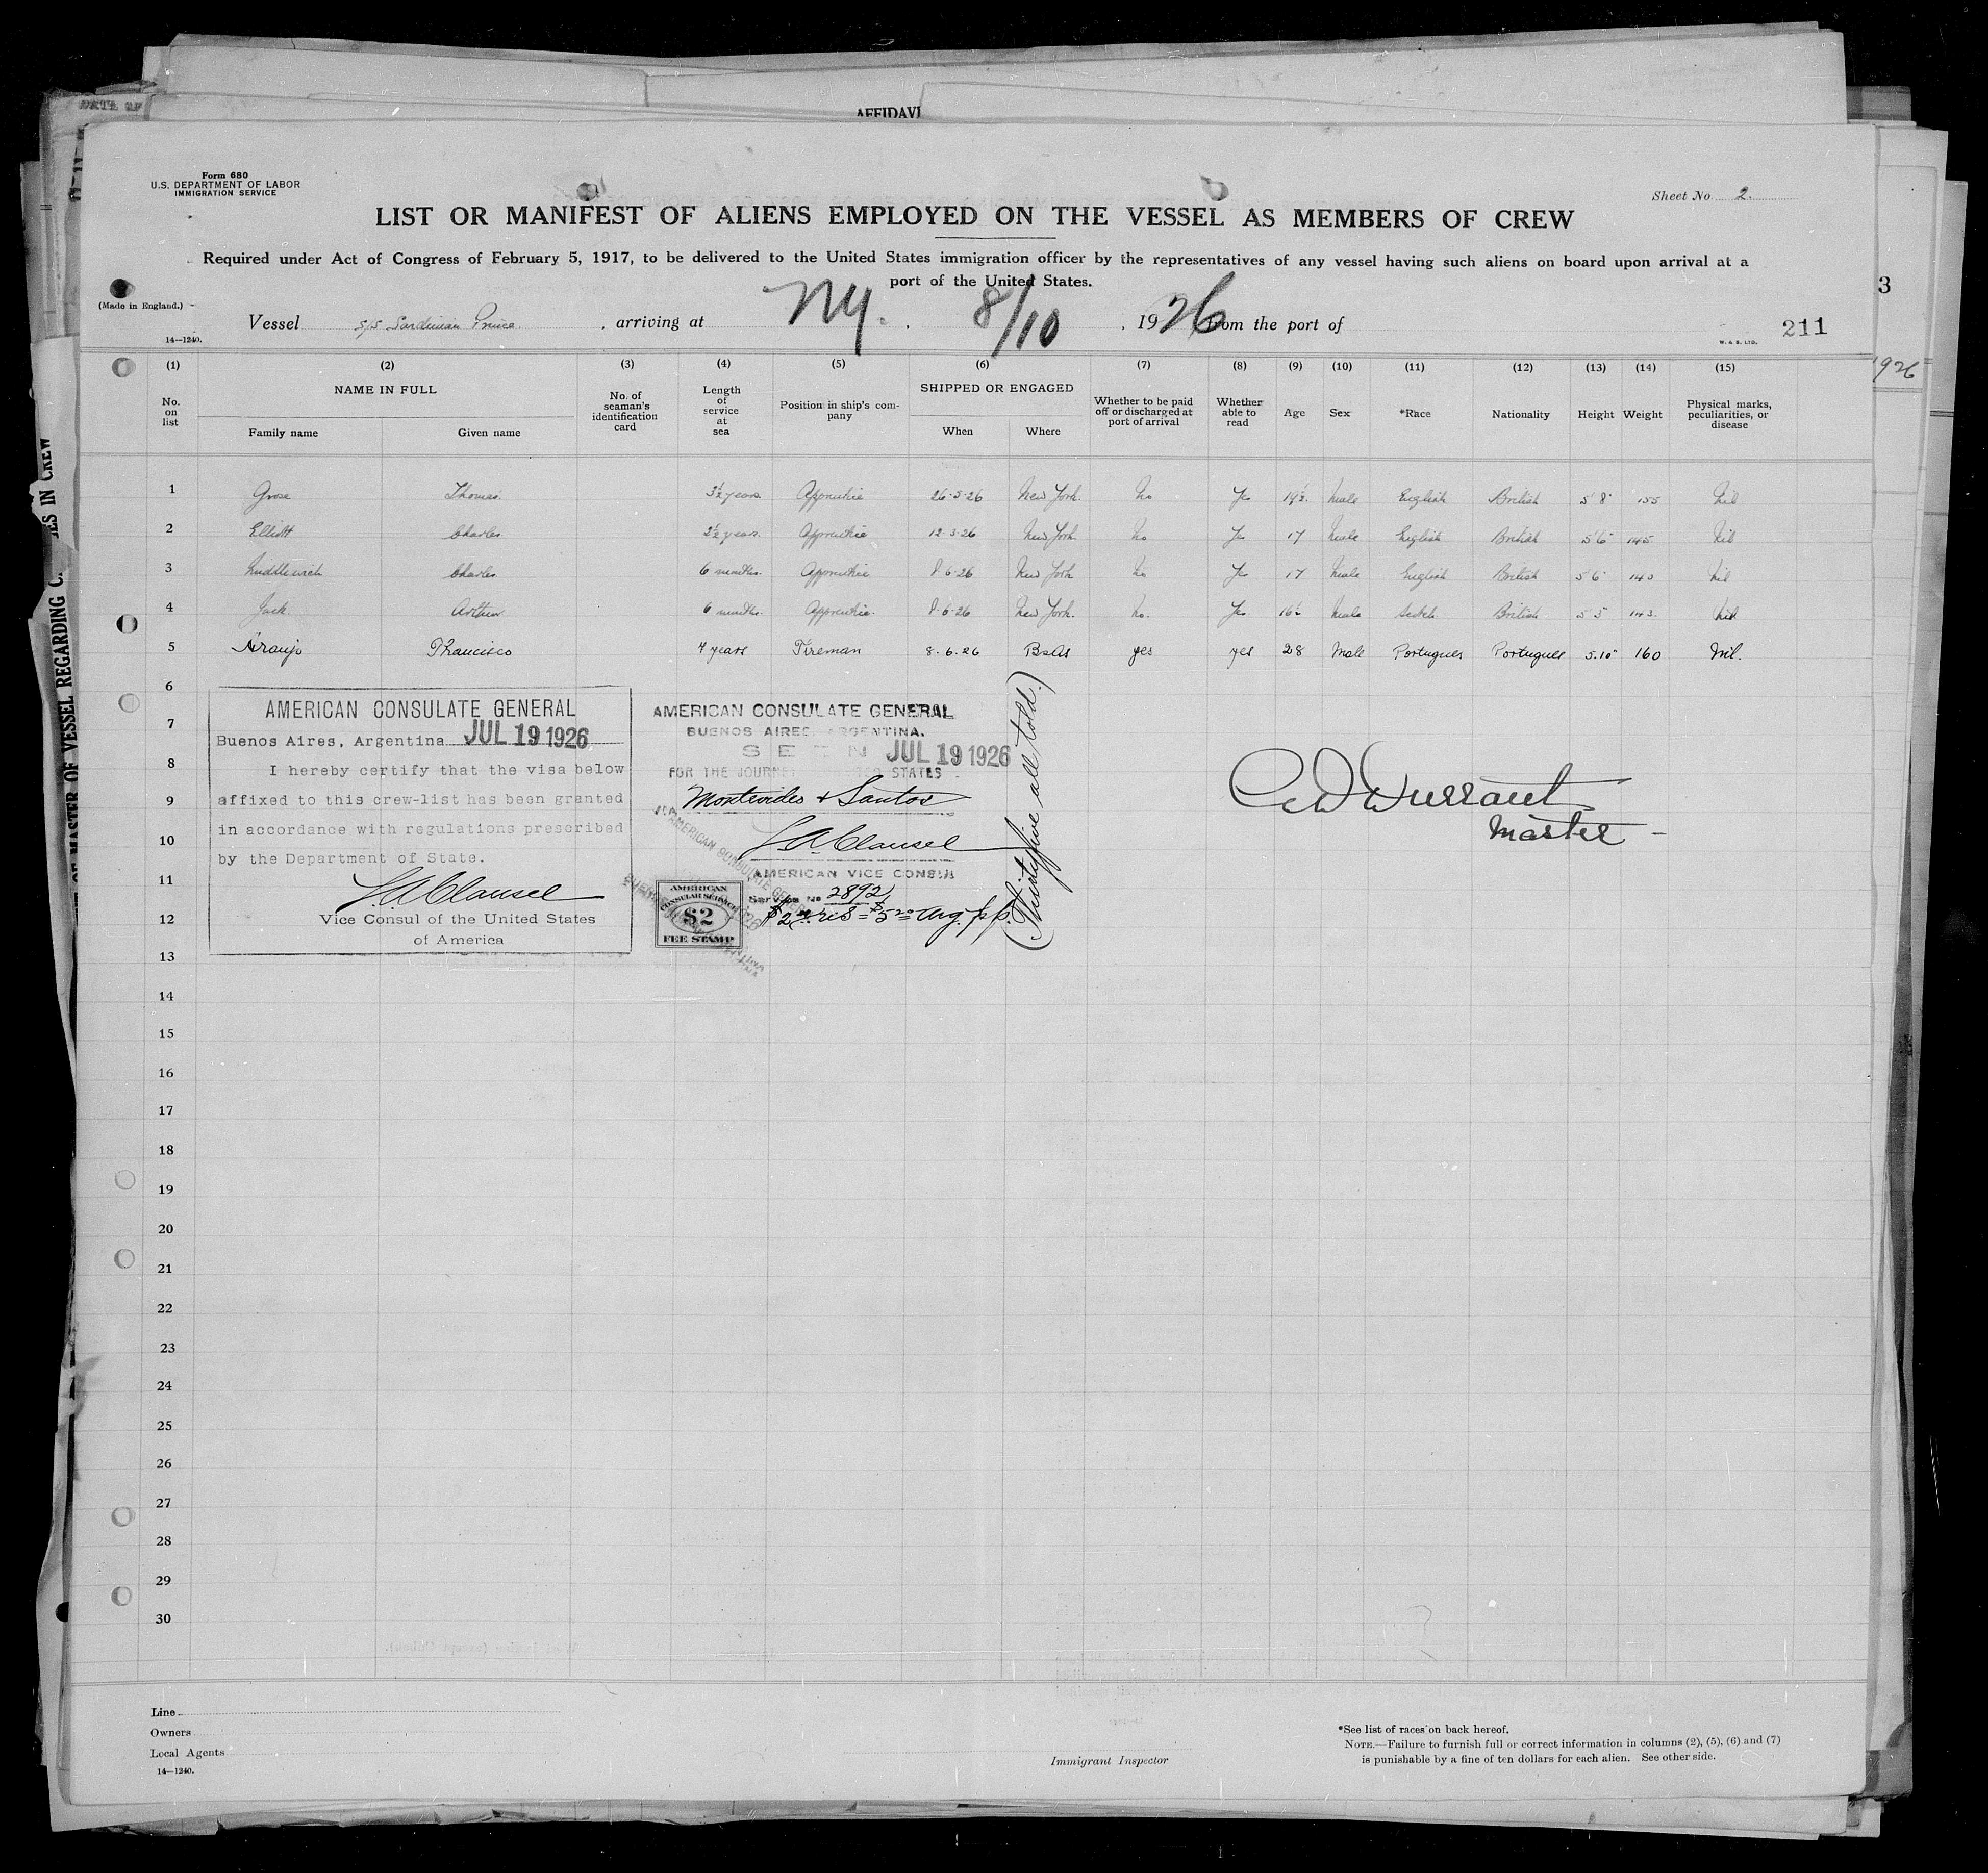 DATE OF
AFFIDAVI
Form 680
U.S. DEPARTMENT OF LABOR
IMMIGRATION SERVICE
Sheet No. 2.
LIST OR MANIFEST OF ALIENS EMPLOYED ON THE VESSEL AS MEMBERS OF CREW
Required under Act of Congress of February 5, 1917, to be delivered to the United States immigration officer by the representatives of any vessel having such aliens on board upon arrival at a
port of the United States.
3
(Made in England.)
Vessel S/S Sardinian Prince, arriving at NY., 8/10, 1926 from the port of
211
14—1240.
W. & S. LTD.
1926
(1) (2) (3) (4) (5) (6) (7) (8) (9) (10) (11) (12) (13) (14) (15)
No. on list
NAME IN FULL
Family name Given name
No. of seaman's identification card
Length of service at sea
Position in ship's company
SHIPPED OR ENGAGED
When Where
Whether to be paid off or discharged at port of arrival
Whether able to read
Age Sex *Race Nationality Height Weight
Physical marks, peculiarities, or disease
1 Grose Thomas 3½ years Apprentice 26-5-26 New York. No Yes 19½ Male English British 5 8 155 Nil
2 Elliott Charles 2½ years. Apprentice 12-3-26 New York No Yes 17 Male English British 5 6 145 Nil
3 Charles 6 months. Apprentice 1-6-26 New York No Yes 17 Male English British 5 6 140 Nil
4 Jack Arthur 6 months. Apprentice. 1-6-26 New York. No. Yes 16½ Male Scotch British 5 5 143. Nil
5 Araujo Thrancisco 4 years Fireman 8.6.26 BsAs yes yes 28 Male Portugues Portugues 5.10 160 Nil.
6
7
8
9
10
11
12
13
14
15
16
17
18
19
20
21
22
23
24
25
26
27
28
29
30
AMERICAN CONSULATE GENERAL
Buenos Aires, Argentina JUL 19 1926
I hereby certify that the visa below
affixed to this crew-list has been granted
in accordance with regulations prescribed
by the Department of State.
Vice Consul of the United States
of America
AMERICAN CONSULATE GENERAL
BUENOS AIRES, ARGENTINA.
SEEN JUL 19 1926
FOR THE JOURNEY STATES
Montevideo & Santos
AMERICAN VICE CONSUL
Service No 2892
AMERICAN
CONSULAR SERVICE
$2
FEE STAMP
(Thirty five all told.)
Durrant
Master
Line
Owners
Local Agents
14—1240.
Immigrant Inspector
*See list of races on back hereof.
NOTE.—Failure to furnish full or correct information in columns (2), (5), (6) and (7)
is punishable by a fine of ten dollars for each alien. See other side.
OF MASTER OF VESSEL REGARDING C
ES IN CREW